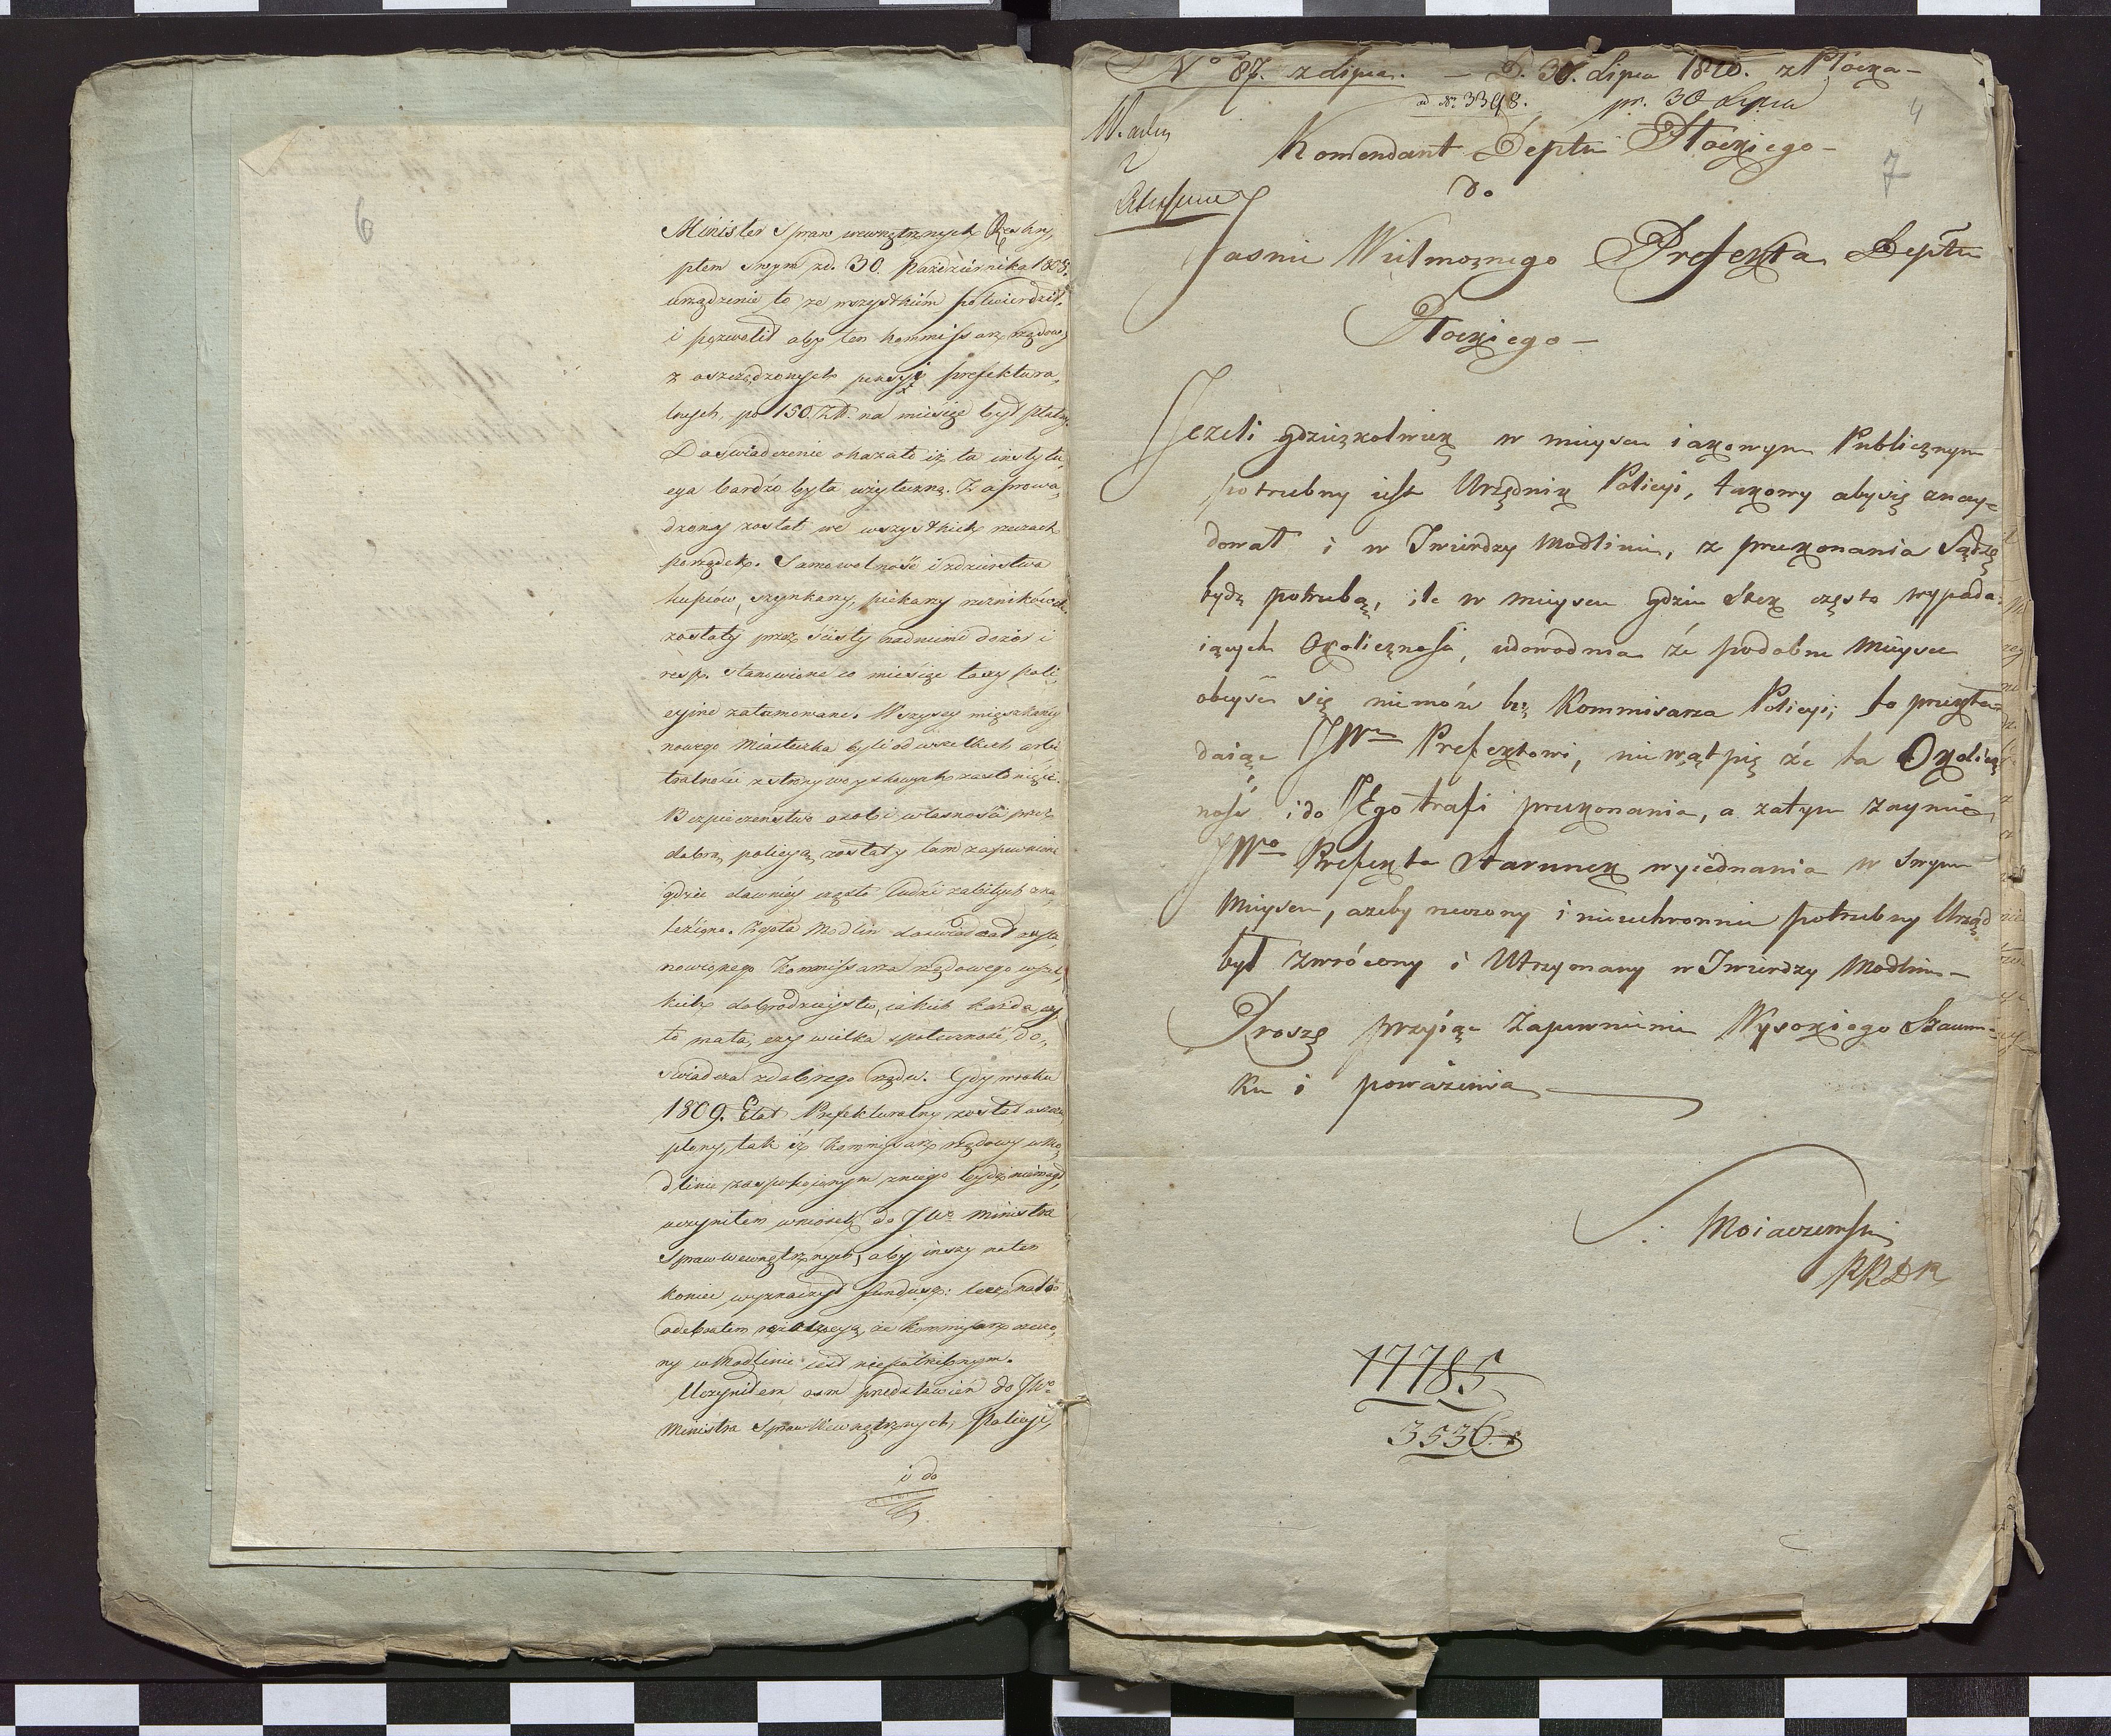 6
Minister Spraw wewnętrznych Reskry„
ptem swym zd. 30. Października 1808.
urządzenie to ze wszystkiém potwierdził.
i pozwolił aby ten kommissarz rządowy
z oszczędzonych pensyi prefektura„
lnych po 150. Zł. na miesiąc był płatny.
Doświadczenie okazało iż ta instytu„
cya bardzo była użyteczną. Zaprowa„
dzony został we wszystkich rzeczach
porządek. Samowolność i zdzierstwa
kupców, szynkarzy, piekarzy rzeźników etc.
zostały przez ścisły nadniemi dozór i
resp. stanowione co miesiąc taxy poli„
cyine zatamowane. Wszyscy mieszkańcy
nowego Miasteczka byli od wszelkich arbi
tralności ze strony woyskowych zasłonięci.
Bezpieczeństwo osob i własności przez
dobrą policyą zostały tam zapewnione
gdzie dawniéy często ludzi zabitych zna„
leziono. Zgoła Modlin doświadczał z usta„
nowionego Kommissarza rządowego wszel„
kich dobrodzieystw, iakich każda czy
to mała, czy wielka społeczność, do„
świadcza z dobrego rządu. Gdy w roku
1809. Etat Prefekturalny został uszczu„
plony, tak iż Kommissarz rządowy w Mo„
dlinie zaspokoionym z niego bydź niemógł,
uczyniłem wniosek do JWo Ministra
Spraw wewnętrznych, aby inszy na ten
koniec wyznaczył fundusz: lecz na to
odebrałem rezolucyą, że Kommissarz rzeczo„
ny w Modlinie iest niepotrzebnym.
Uczyniłem osm przedstawień do JWo
Ministra Spraw Wewnętrznych, Policyi,
i do
No 87. z Lipca. — D. 30. Lipca 1810. z Płocka —
ad No 3398. pr. 30 Lipca
4
7
Komendant Deptu Płockiego —
do
Jasnie Wielmożnego Prefekta Deptu
Płockiego —
Jeżeli gdziézkolwiek w mieyscu iakowym Publicznym
potrzebny iest Urzędnik Policyi, takowy aby się znay„
dował i w Twierdzy Modlinie, z przekonania Sądzę
bydź potrzebą, ile w mieyscu gdzie Stek często wypada„
iących Okoliczności, udowodnia że podobne Mieysce
obeyść się niemoże bez Kommisarza Policyi; to przekła„
daiąc JWmu Prefektowi, nie wątpię że ta Okolicz
ność i do JEgo trafi przekonania, a zatym zaymie
JWo Prefekta Starunek wyiednania w Swym
Mieyscu, ażeby rzeczony i nieuchronnie potrzebny Urząd
był zwrócony i Utrzymany w Twierdzy Modlin —
Proszę przyiąć Zapewnienie Wysokiego Szacun„
ku i poważenia
17785
3536.